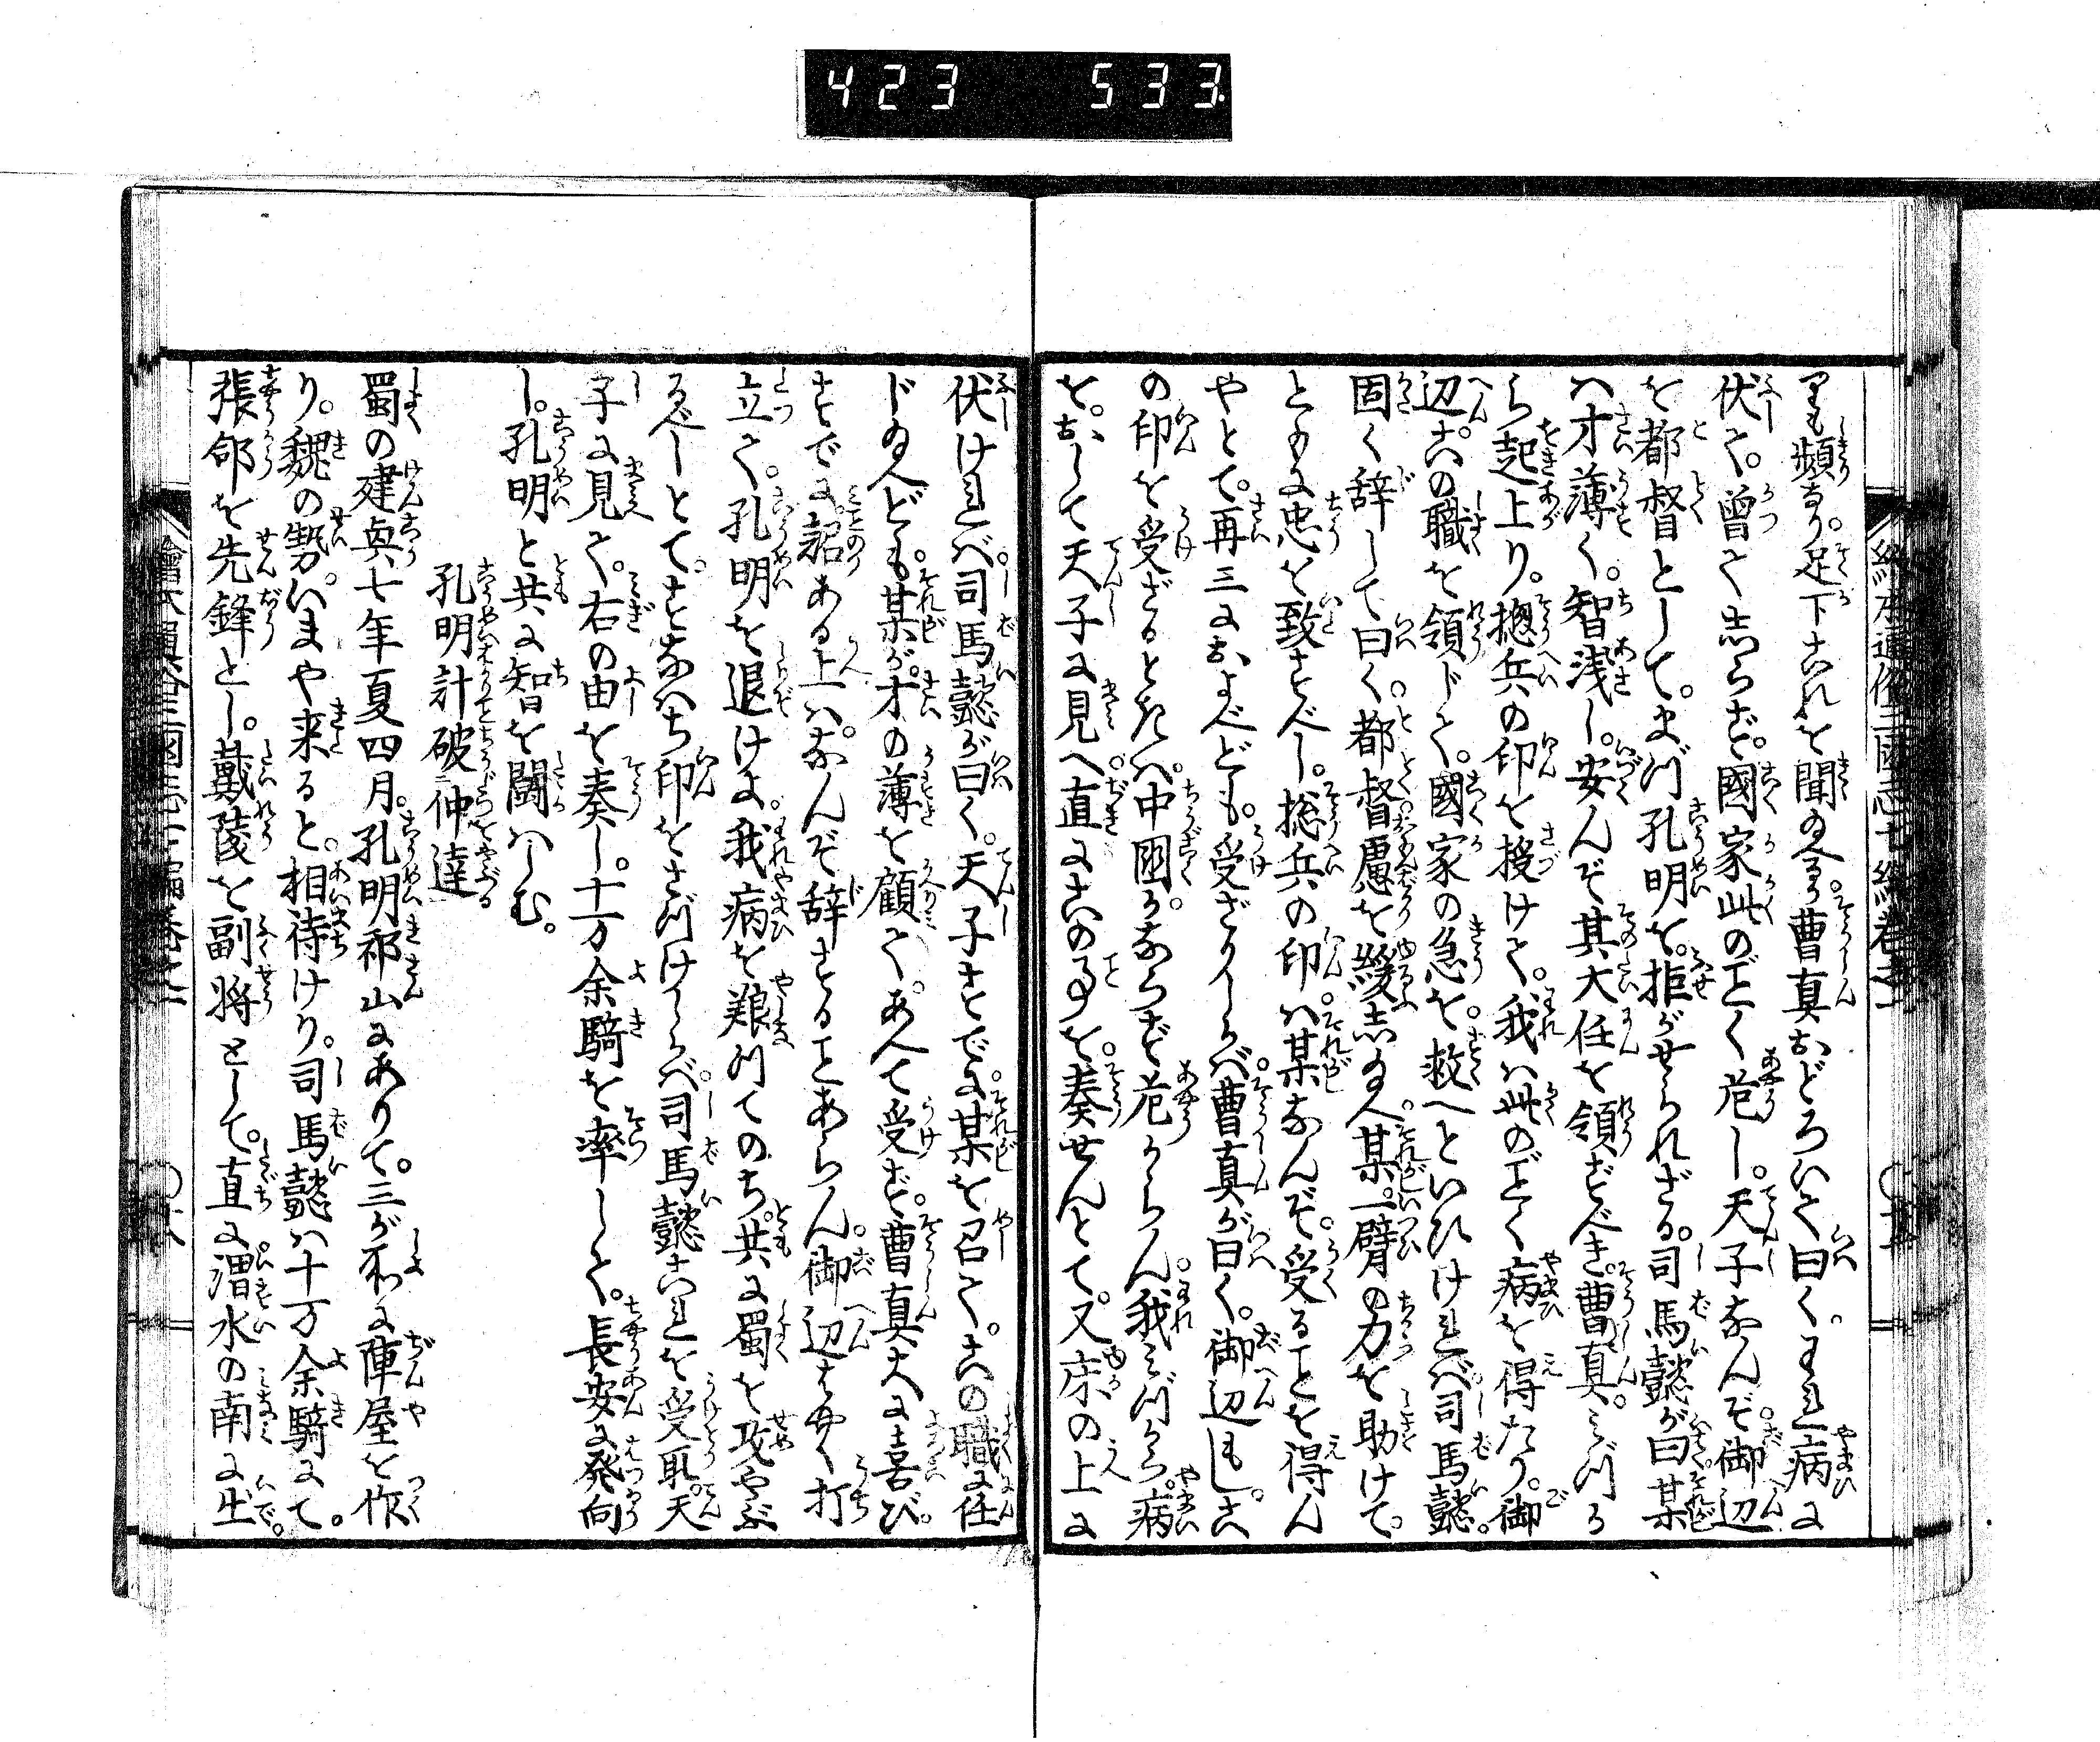 423 533
りも頻なり。足下これを聞玉ふる。曹真おどろいて曰く。われ病に
伏して。曽てしらず。國家此のごとく危し。天子なんぞ。御辺
を都督として。まづ孔明を。拒がせられざる。司馬懿が曰某
ハ才薄く。智浅し。安んぞ其大任を領ずべき。曹真。みづか
ら起上り。摠兵の印を授けて。我ハ此のごとく病を得たり。御
辺。この職を領じて。國家の急を。救へといひけれバ司馬懿。
固く辞して曰く。都督。慮を緩し玉へ。某。一臂の力を助けて。
ともに忠を致すべし。摠兵の印ハ某なんぞ。受ることを得ん
やとて。再三におよべども。受ざりしかバ。曹真が曰く。御辺もしこ
の印を受ざるときハ。中國。かならず危からん。我みづから。病
を。おして天子に見へ。直にこの事を。奏せんとて。又床の上に
伏けれバ司馬懿が曰く。天子すでに。某を召て。この職に任
じ玉へども。某が。才の薄を顧て。あへて受ず。曹真大に喜び。
すでに。詔ある上ハ。なんぞ辞することあらん。御辺はやく打
立て。孔明を退けよ。我病を難めてのち。共に蜀を攻やぶ
るべしとて。すなハち印をさづけしかバ司馬懿これを受取。天
子に見て。右の由を奏し。十万余騎を率して。長安に発向
し。孔明と共に智を闘ハしむ。
孔明計破仲達
蜀の建興七年夏四月。孔明祁山にありて。三が所に陣屋を作
り。魏の勢。いまや来ると。相待けり。司馬懿ハ十万余騎にて。
張郃を先鋒とし。戴陵を副将として。直に渭水の南に出。